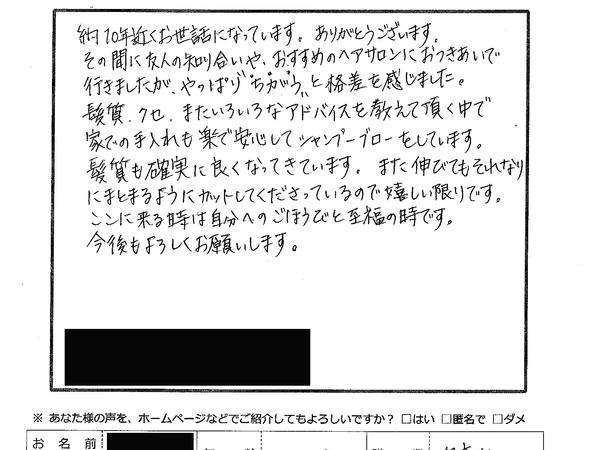 約10年近くお世話になっています。ありがとうございます。
その間に友人の知り合いや、おすすめのヘアサロンにおつきあいで
行きましたが、やっぱり“ちがう”と格差を感じました。
髪質、クセ、またいろいろなアドバイスを教えて頂く中で
家での手入れも楽で安心してシャンプーブローをしています。
髪質も確実に良くなってきています。また伸びてもそれなり
にまとまるようにカットしてくださっているので嬉しい限りです。
ここに来る時は自分へのごほうびと至福の時です。
今後もよろしくお願いします。
※ あなた様の声を、ホームページなどでご紹介してもよろしいですか? □はい □匿名で □ダメ
お名前